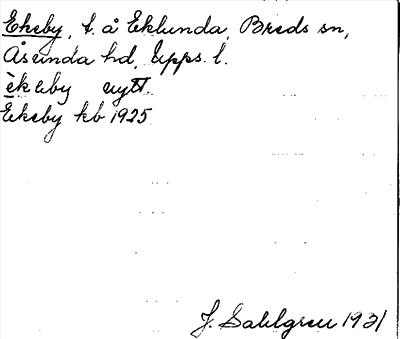 Ekeby, t. å Eklunda, Breds sn,
Åsunda hd, Upps. l.
èkeby uytt.
Ekeby kb 1925
J. Sahlgren 1931